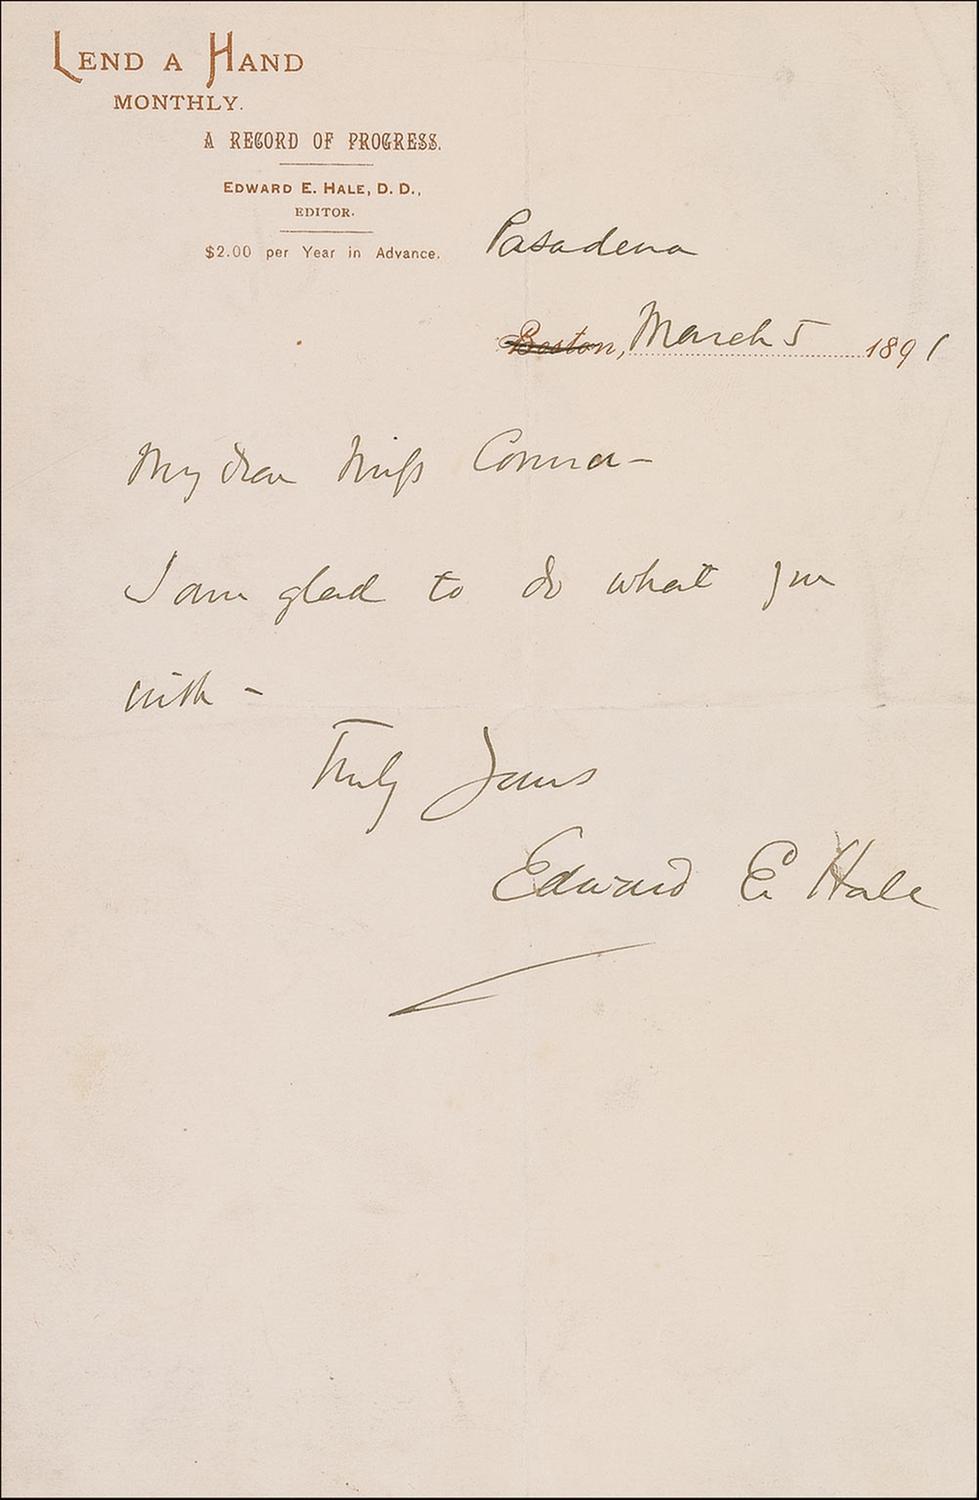 LEND A HAND
MONTHLY.
A RECORD OF PROGRESS.
EDWARD E. HALE, D. D.,
EDITOR.
$2.00 per Year in Advance.
Pasadena
Boston, March 5 1891
My dear Miss
I am glad to do what you
wish -
Truly Yours
Edward E Hale